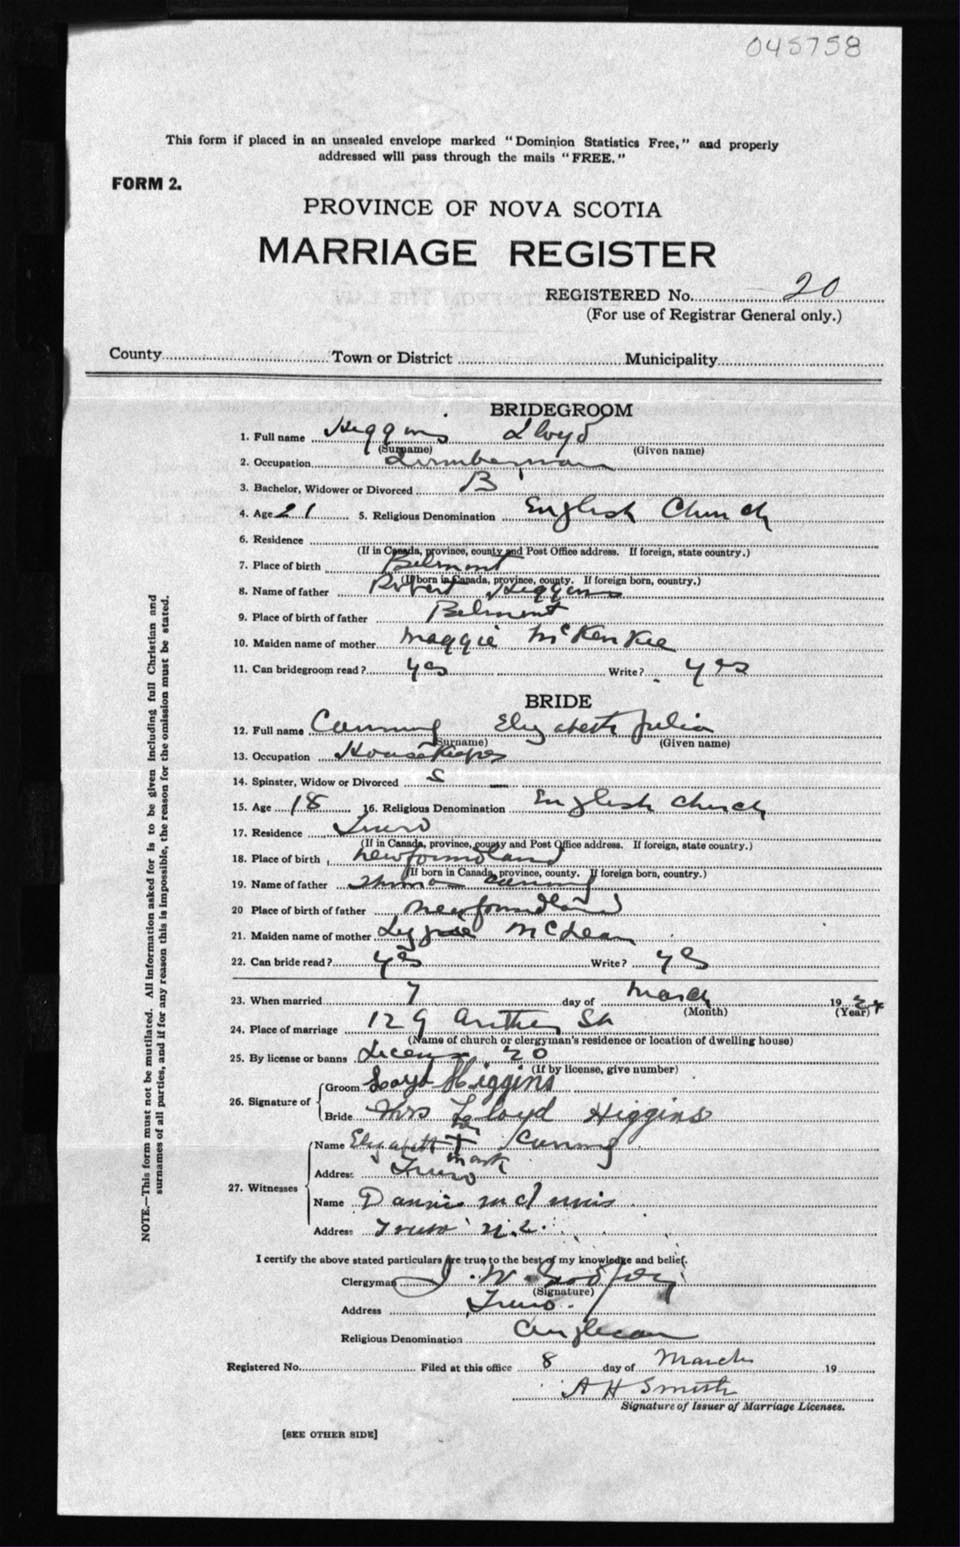 045758
This form if placed in an unsealed envelope marked "Dominion Statistics Free," and properly
addressed will pass through the mails "FREE."
FORM 2.
PROVINCE OF NOVA SCOTIA
MARRIAGE REGISTER
REGISTERED No. 20
(For use of Registrar General only.)
County Town or District Municipality
BRIDEGROOM
1. Full name Higgins Lloyd
(Surname) (Given name)
2. Occupation Lumberman
3. Bachelor, Widower or Divorced B
4. Age 21 5. Religious Denomination English Church
6. Residence
(If in Canada, province, county and Post Office address. If foreign, state country.)
7. Place of birth Belmont
(If born in Canada, province, county. If foreign born, country.)
8. Name of father Robert Higgins
9. Place of birth of father Belmont
10. Maiden name of mother Maggie McKenkie
11. Can bridegroom read? yes Write? yes
BRIDE
12. Full name Canning Elizabeth Julia
(Surname) (Given name)
13. Occupation Housekeeper
14. Spinster, Widow or Divorced S
15. Age 18 16. Religious Denomination English Church
17. Residence Truro
(If in Canada, province, county and Post Office address. If foreign, state country.)
18. Place of birth Newfoundland
(If born in Canada, province, county. If foreign born, country.)
19. Name of father Canning
20 Place of birth of father Newfoundland
21. Maiden name of mother McLean
22. Can bride read? yes Write? yes
23. When married 7 day of March 1924
(Month) (Year)
24. Place of marriage 129 Arthur St
(Name of church or clergyman's residence or location of dwelling house)
25. By license or banns License 20
(If by license, give number)
26. Signature of Groom Loyd Higgins
Bride Mrs Lloyd Higgins
27. Witnesses Name Elizabeth Canning
mark
Address Truro
Name Dannie McInnis
Address Truro N.S.
I certify the above stated particulars are true to the best of my knowledge and belief.
Clergyman J. W. Godfrey
(Signature)
Address Truro.
Religious Denomination Anglican
Registered No. Filed at this office 8 day of March 19
A H Smith
Signature of Issuer of Marriage Licenses.
[SEE OTHER SIDE]
NOTE.—This form must not be mutilated. All information asked for is to be given including full Christian and
surnames of all parties, and if for any reason this is impossible, the reason for the omission must be stated.